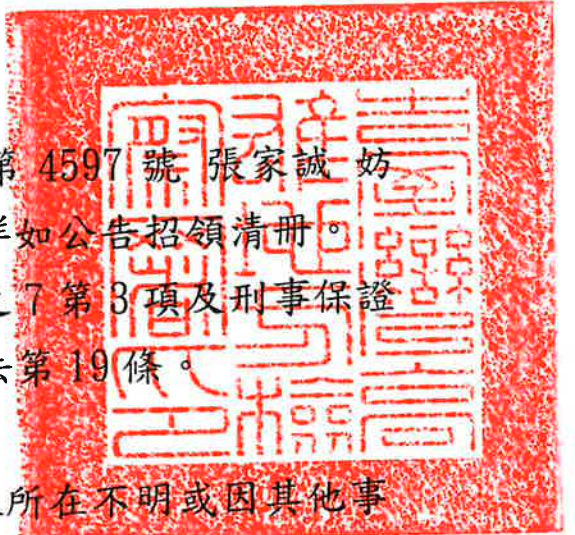 第 4597 號 張家誠 妨
如公告招領清冊。
7 第 3 項及刑事保證
第 19 條。
所在不明或因其他事